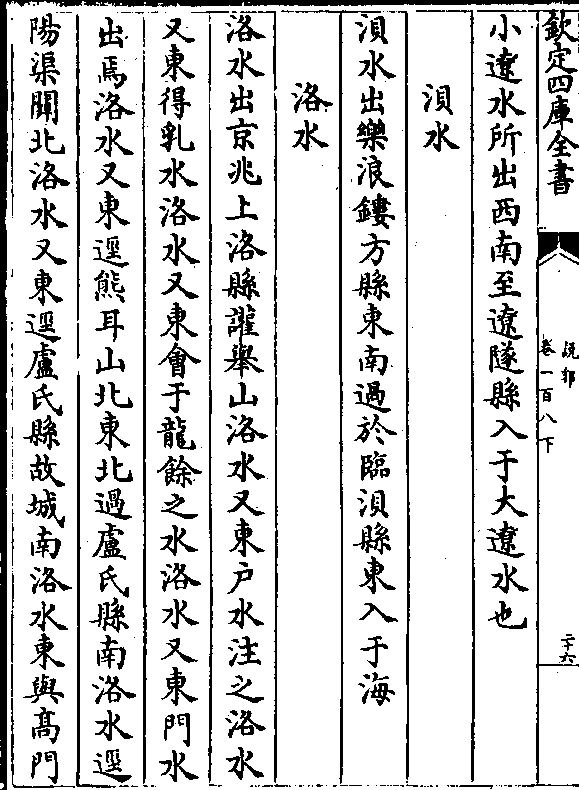 欽定四庫全書
說郛
卷一百八下
二十六
小遼水所出西南至遼隧縣入于大遼水也
浿水
浿水出樂浪鏤方縣東南過於臨浿縣東入于海
洛水
洛水出京兆上洛縣讙舉山洛水又東户水注之洛水
又東得乳水洛水又東會于龍餘之水洛水又東門水
出焉洛水又東逕熊耳山北東北過盧氏縣南洛水逕
陽渠關北洛水又東逕盧氏縣故城南洛水東與髙門